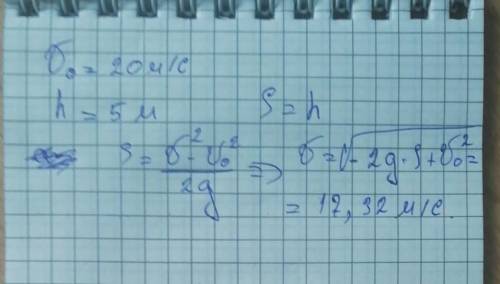 υ₀ = 20 м/с
h = 5 м S = h
S = (υ² - υ₀²)/2g => υ = √(-2g·S + υ₀²) =
= 17,32 м/с.